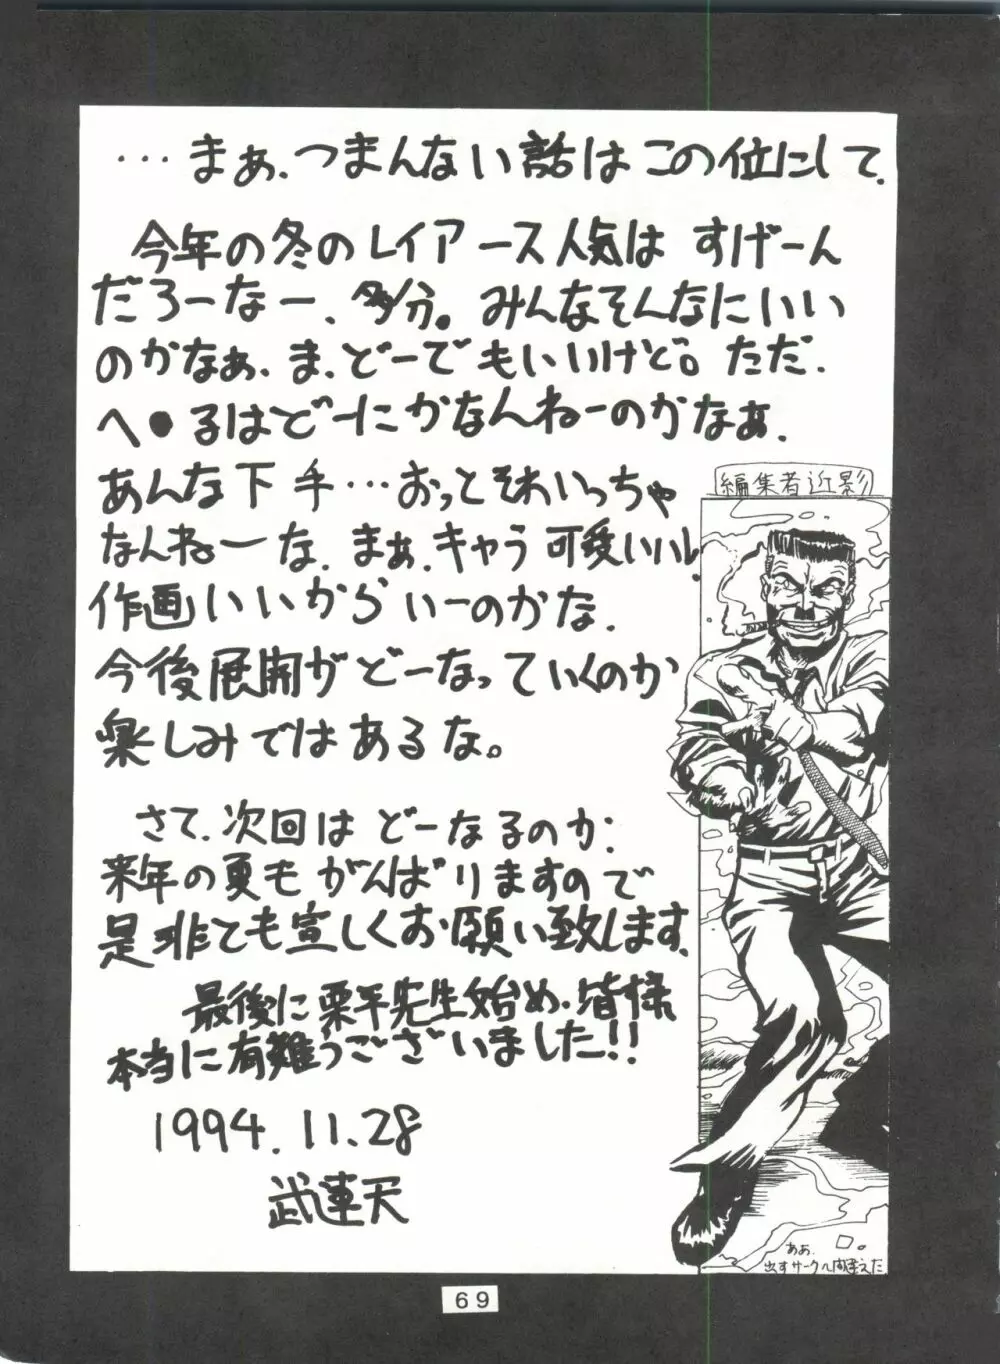 …まぁ、つまんない話はこの位にして、
今年の冬のレイアース人気は すげーん
だろーなー、多分。みんなそんなにいい
のかなぁ、ま、どーでもいいけど。ただ、
へ●るはどーにかなんねーのかなぁ、
あんな下手…おっとそれいっちゃ
なんねーな、まぁ、キャラ可愛いいし、
作画いいからいーのかな、
今後展開がどーなっていくのか
楽しみではあるな。
さて、次回は どーなるのか、
来年の夏も がんばりますので
是非とも宜しくお願い致します、
最後に栗平先生始め、皆様
本当に有難うございました!!
1994.11.28
武連天
編集者近影
ああ、
出すサークル間違えた
69